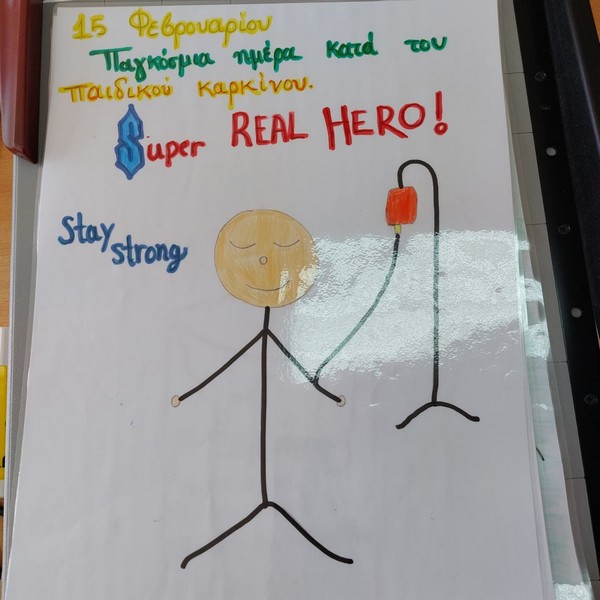 15 Φεβρουαρίου
Παγκόσμια ημέρα κατά του
παιδικού καρκίνου.
Super REAL HERO!
stay
strong